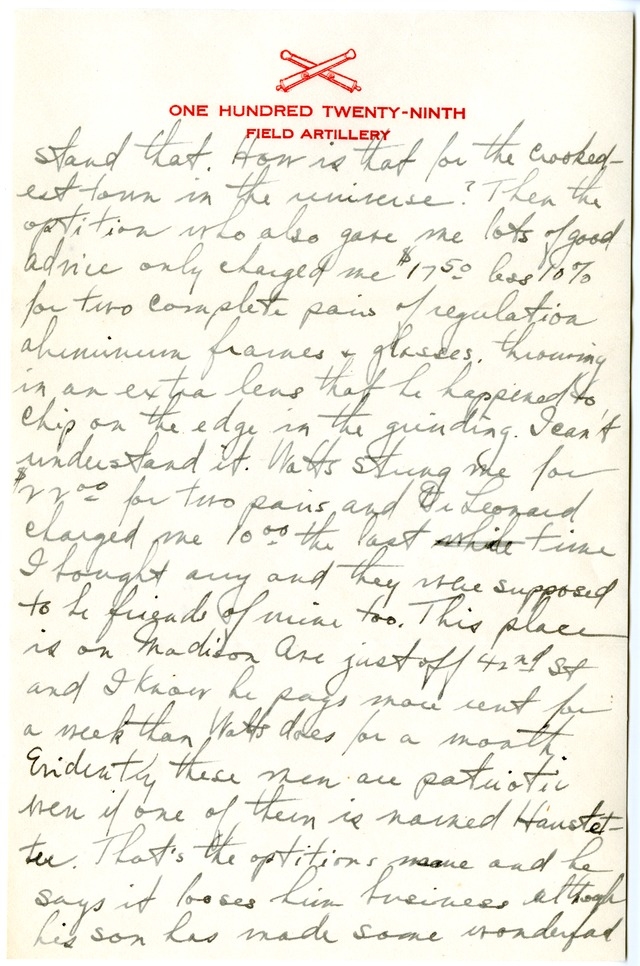 ONE HUNDRED TWENTY-NINTH
FIELD ARTILLERY
stand that. How is that for the crooked-
est town in the universe? Then the
optition who also gave me lots of good
advice only charged me $17.50 less 10%
for two complete pairs of regulation
aluminum frames & glasses, throwing
in an extra lens that he happened to
chip on the edge in the grinding. I can't
understand it. Watts stung me for
$22.00 for two pairs and Dr Leonard
charged me 10.00 the last while time
I bought any and they were supposed
to be friends of mine too. This place
is on Madison Ave just off 42nd St
and I know he pays more rent for
a week than Watts does for a month.
Evidently these men are patriotic
even if one of them is named Haustet-
ter. That's the optitions name and he
says it looses him business although
his son has made some wonderful